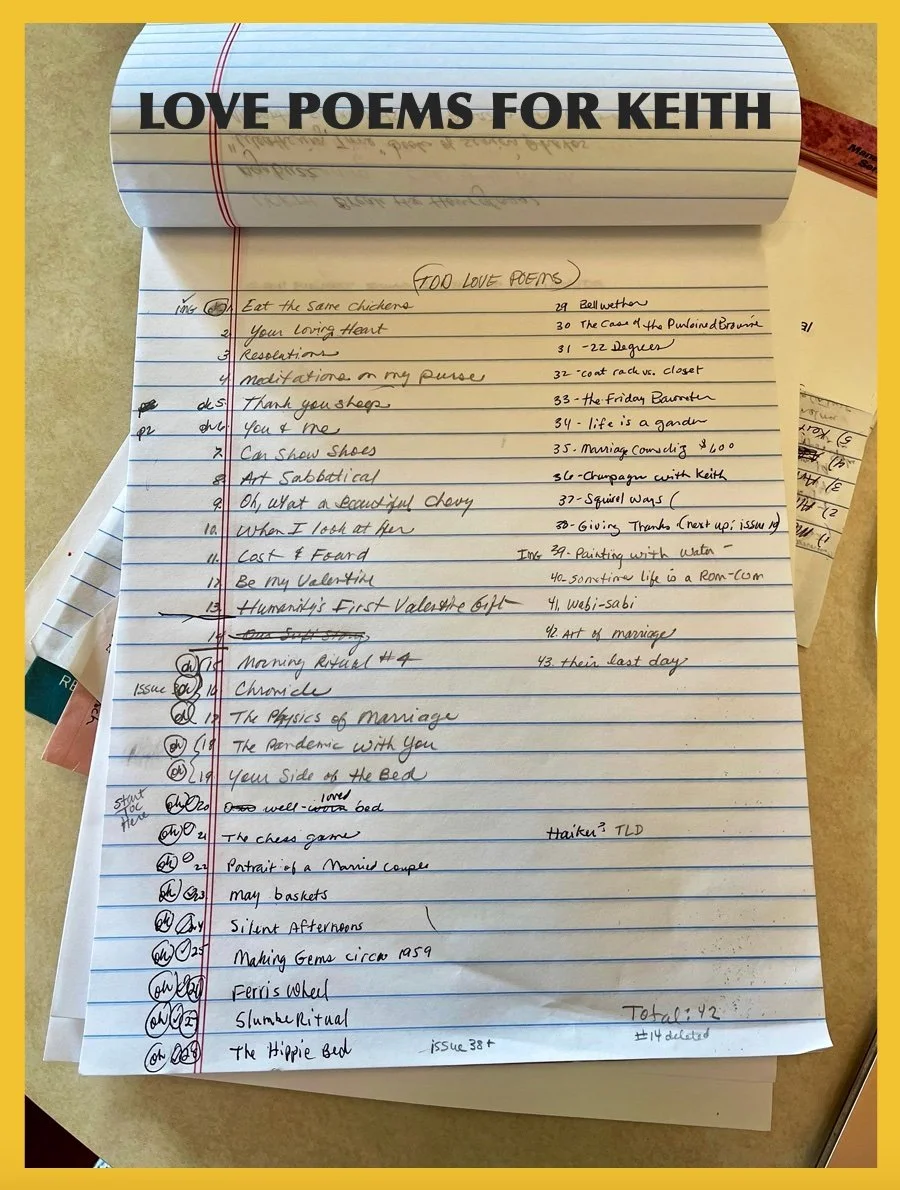 LOVE POEMS FOR KEITH
TOD LOVE POEMS
ING ok 1 Eat the Same Chickens
2 Your Loving Heart
3 Resolutions
4 Meditations on my purse
ok 5. Thank you sheep
p2 ok 6. You & me
7. Car Show Shoes
8. Art Sabbatical
9. Oh, what a Beautiful Chevy
10. When I look at her
11. Lost & Found
12 Be my Valentine
13. Humanity's First Valentine Gift
14
ok 15 Morning Ritual #4
Issue ok 16 Chronicle
ok 17 The Physics of Marriage
ok 18 The Pandemic with You
ok 19 Your Side of the Bed
Start
TOC
Here
ok 20 well-loved bed
ok 21 The chess game
ok 22 Portrait of a Married Couple
ok 23 may baskets
ok 24 Silent Afternoons
ok 25 Making Gems circa 1959
ok 26 Ferris Wheel
ok 27 Slumbe Ritual
ok 28 The Hippie Bed
issue 38+
29 Bellwether
30 The Case of the Purloined Brownie
31 -22 Degrees
32 -coat rack vs. closet
33 - the Friday Barometer
34 - life is a garden
35 - Marriage $600
36 - Champagne with Keith
37 - Squirrel Ways (
38 - Giving Thanks (next up; issue 19)
ING 39 - Painting with Water -
40 - Sometimes life is a Rom-com
41. Wabi-sabi
42. Art of marriage
43. their last day
TLD
Total: 42
#14 deleted